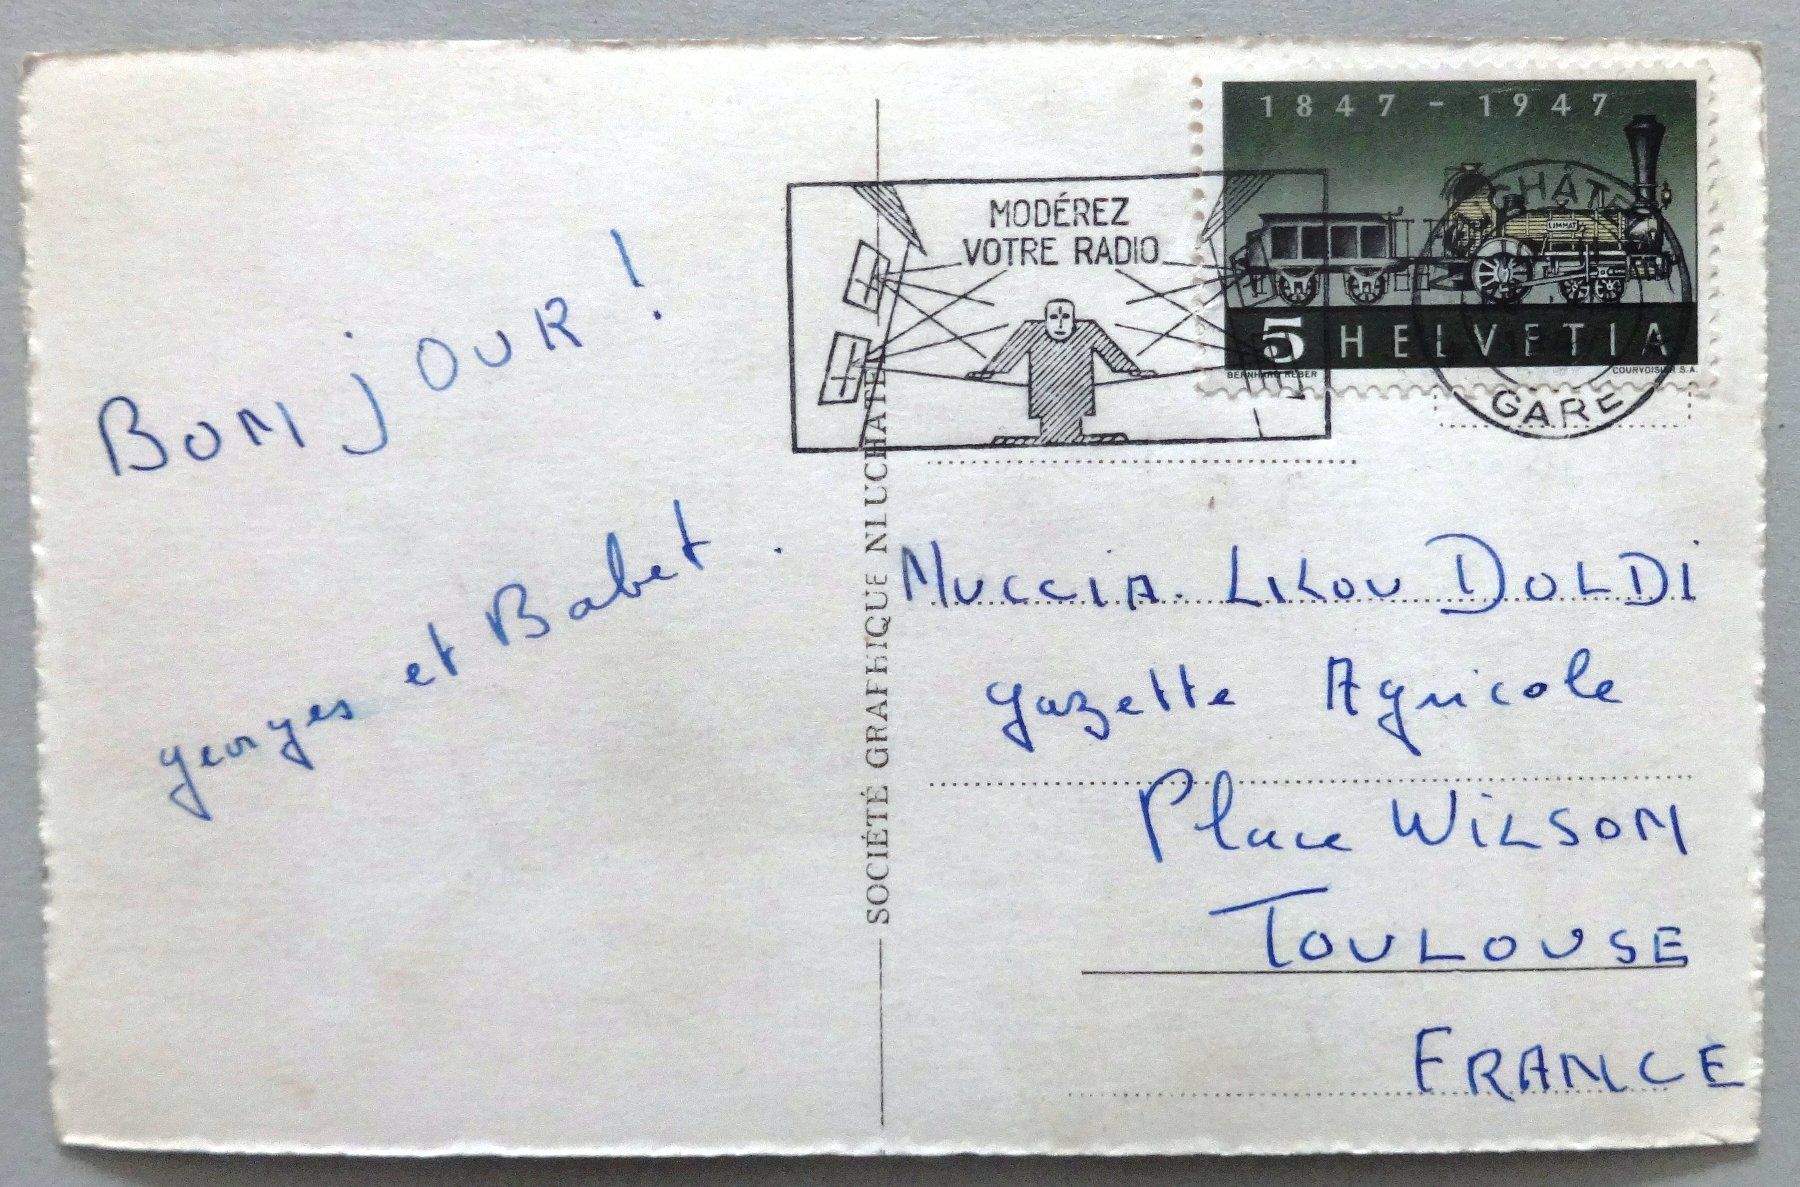 BONjOUR !
georges et Babet .
SOCIÉTÉ GRAPHIQUE NEUCHATEL
MODÉREZ
VOTRE RADIO
1847 - 1947
LIMMAT
5 HELVETIA
BERNHARD REBER
COURVOISIER S.A.
CHÂTE
GARE
MUCCIA. LILOU DOLDi
gazette Agricole
Place WiLSON
TOULOUSE
FRANCE